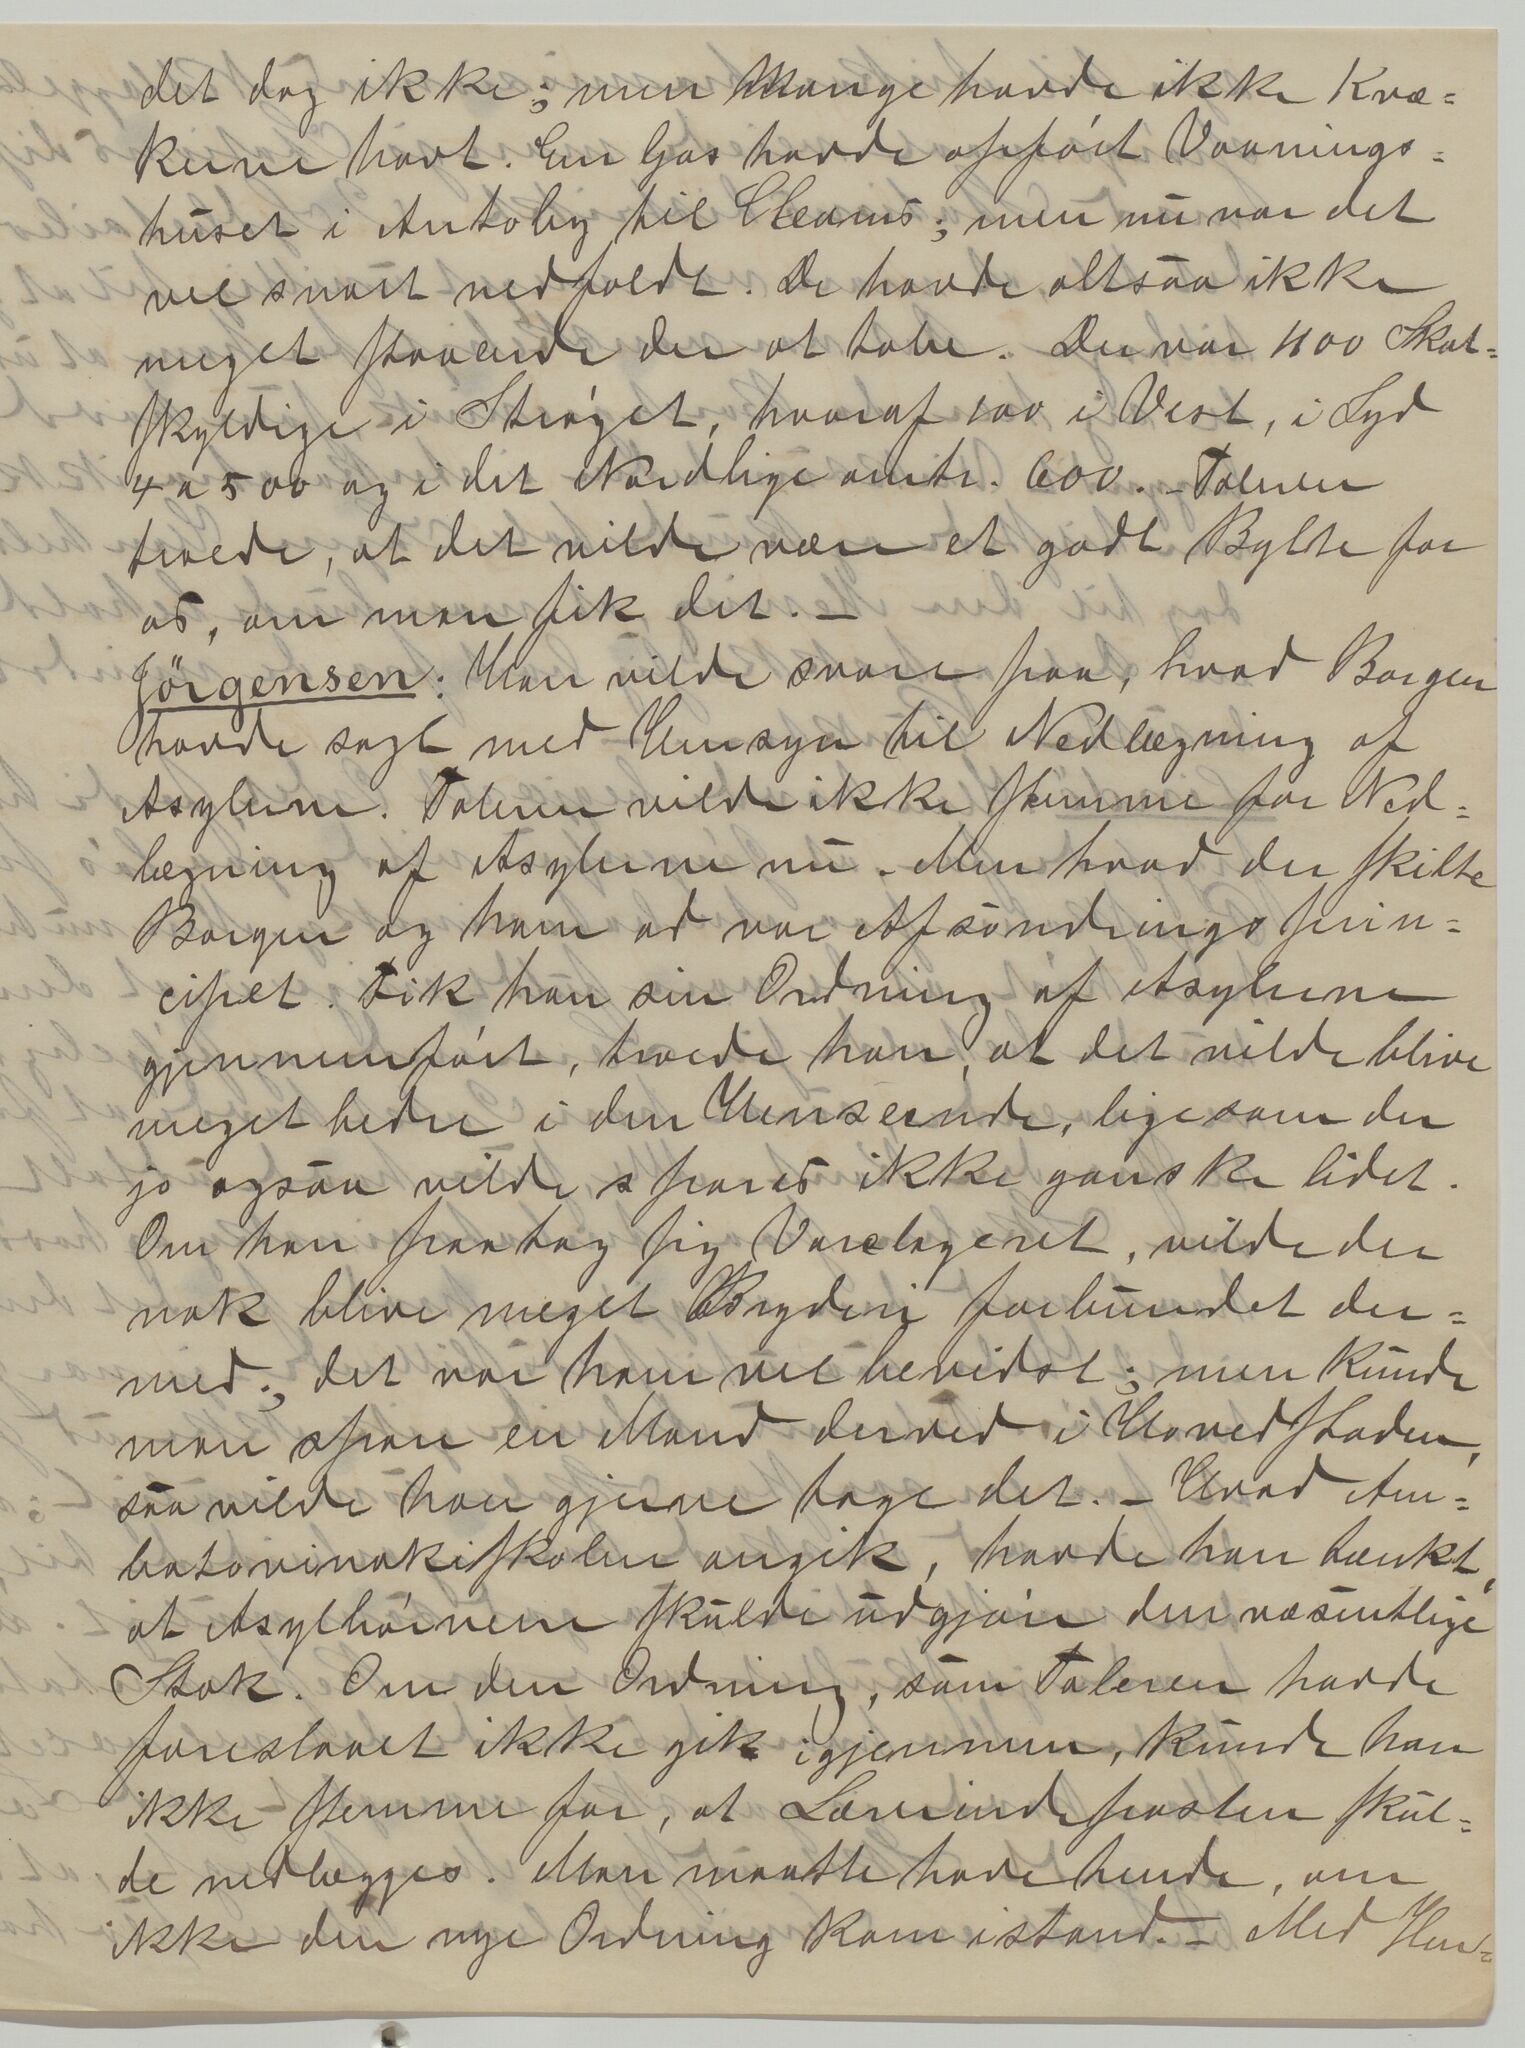 det dog ikke; men Mange havde ikke Kvæ-
kerne havt. En Gas havde opført Vaanings-
huset i Antoby til Cleams; men nu var det
vel snart nedfaldt. De havde altsaa ikke
meget staaende der at tabe. Der var 1100 Skat-
skyldige i Strøget, hvoraf 100 i Vest, i Syd
4 a 500 og i det Nordlige omtr. 600. – Taleren
troede, at det vilde være et godt Bytte for
os, om man fik det. –
Jörgensen: Han vilde svare paa, hvad Borgen
havde sagt med Hensyn til Nedlægning af
Asylerne. Taleren vilde ikke stemme for Ned-
lægning af Asylerne nu. Men hvad der skilte
Borgen og ham ad var Afsøndringsprin-
cipet. Fik han sin Ordning af Asylerne
gjennemført, troede han, at det vilde blive
meget bedre i den Henseende, ligesom der
jo ogsaa vilde spares ikke ganske lidet.
Om han paatog sig Varelageret, vilde der
nok blive meget Bryderi forbundet der-
med; det var ham vel bevidst; men kunde
man spare en Mand derved i Hovedstaden,
saa vilde han gjerne tage det. – Hvad Am-
batovinakiskolen angik, havde han tænkt,
at Asylbørnene skulde udgjøre den væsentlige
Stok. Om den Ordning, som Taleren havde
foreslaaet ikke gik igjennem, kunde han
ikke stemme for, at Lærerindeposten skul-
de nedlægges. Man maatte have hende, om
ikke den nye Ordning kom istand. – Med Hen-